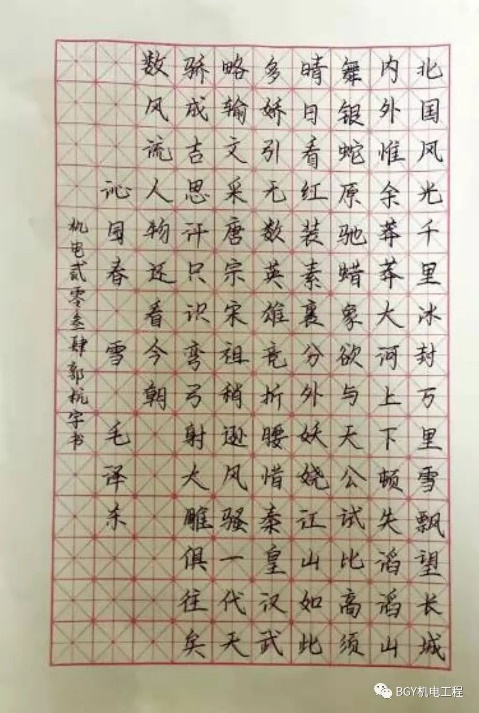 北国风光千里冰封万里雪飘望长城
内外惟余莽莽大河上下顿失滔滔山
舞银蛇原驰蜡象欲与天公试比高须
晴日看红装素裹分外妖娆江山如此
多娇引无数英雄竞折腰惜秦皇汉武
略输文采唐宗宋祖稍逊风骚一代天
骄成吉思汗只识弯弓射大雕俱往矣
数风流人物还看今朝
沁园春 雪 毛泽东
机电贰零叁肆郭杭宇书
BGY机电工程